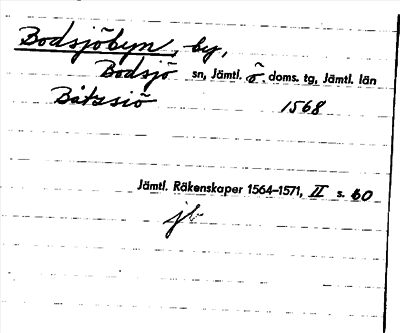 Bodsjöbyn, by,
Bodsjö sn, Jämtl. ö doms. tg, Jämtl. län
Båtzsiö 1568
Jämtl. Räkenskaper 1564-1571, II s. 60
jb